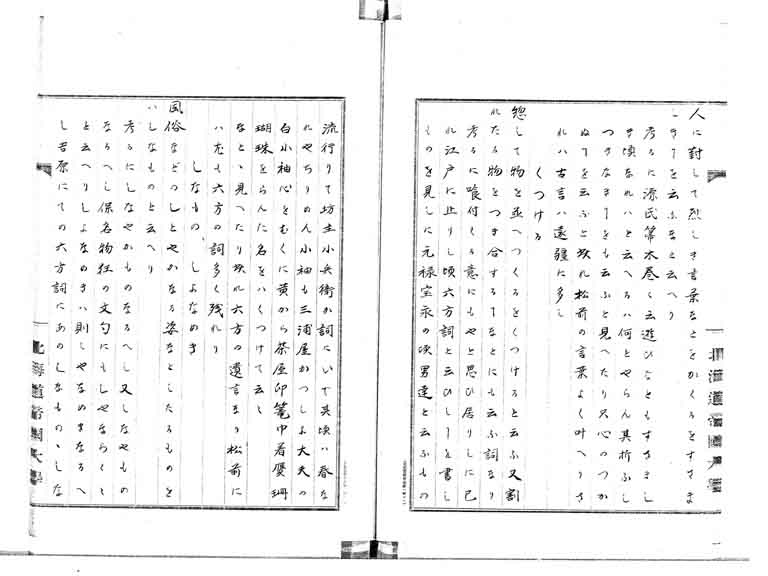 人に対して烈しき言葉などをかくるをすさま
しきことを云ふなと云へり
考るに源氏箒木巻に云遊ひなともすさまし
き頃なれハと云へるハ何とやらん其折ふし
つきなきことをも云ふと見へたり又心のつか
ぬことを云ふと 松前の言葉よく叶へりさ
れハ古言ハ遠疆に多し
くつける
惣して物を並へつくるをくつけると云ふ又割
れたる物をつき合することなとにも云ふ詞なり
考るに喰付くる意にもやと思ひ居りしに已
れ江戸に止りし頃六方詞と云ひしことを書し
ものを見しに元禄宝永の頃男達と云ふもの
流行りて坊主小兵衛か詞にいて其頃ハ春な
れやちりめん小袖も三浦屋かつしよ大夫の
白小袖心をむくに黄から茶屋印篭巾着瓔珊
瑚珠をらんた名をハくつけて云々
なと 見へたり 六方の遺言なり松前に
ハ 六方の詞多く残れり
しなもの しよなめき
風俗なとつしとやかなる姿なとしたるものを
いしなものと云へり
考るにしなやかものなるへし又しなやもの
なるへし保名物狂の文句にもしやならくと
と云へりしよなめきハ則しやなめきなるへ
し吉原にての六方詞にあのしなものゝしな
北海道帝国大学
北海道帝国大学